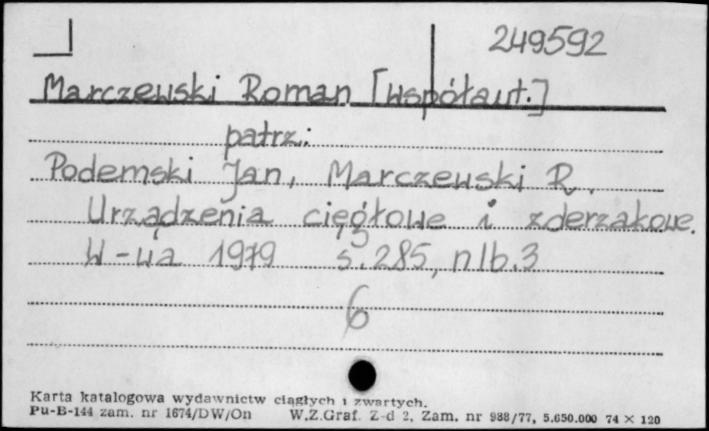 249592
Marczewski Roman [współaut.]
patrz:
Podemski Jan, Marczewski R.
Urządzenia cięgłowe i zderzakowe.
W-wa 1979 s. 285, nlb. 3
6
Karta katalogowa wydawnictw ciągłych i zwartych.
Pu-B-144 zam. nr 1674/DW/On W.Z.Graf. Z-d 2, Zam. nr 988/77, 5.650.000 74 × 120